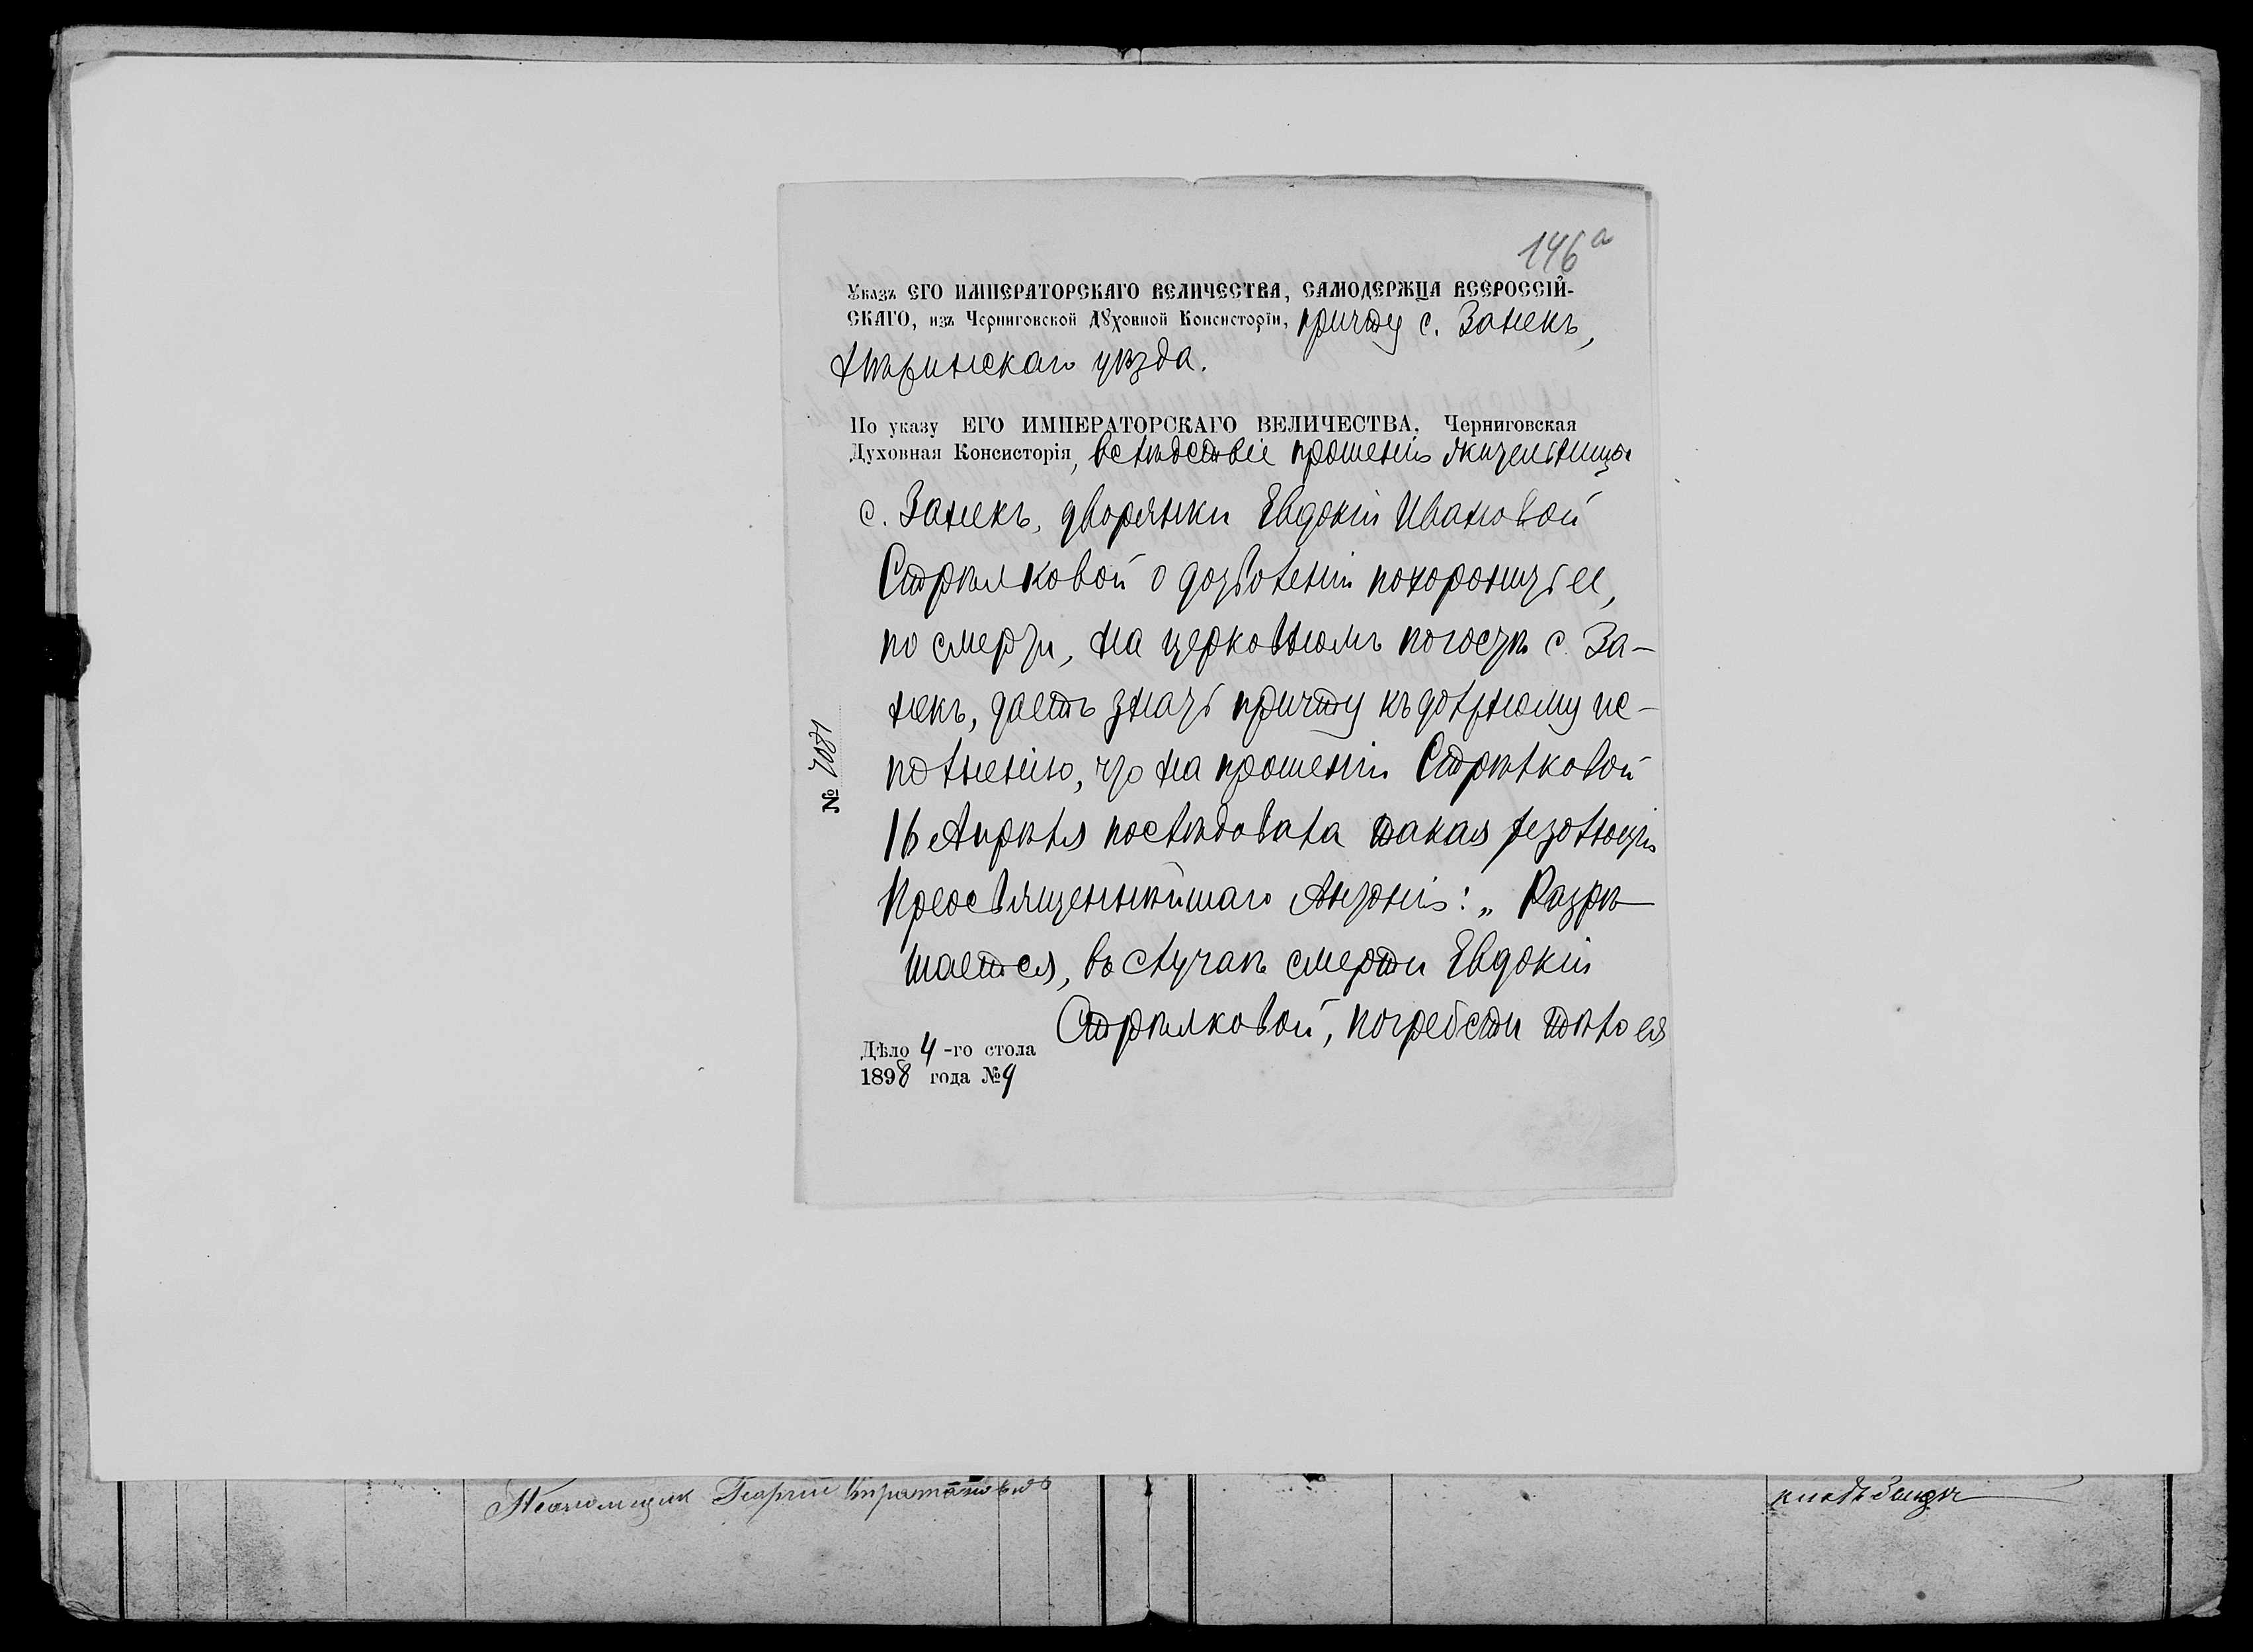 146а
Указъ ЕГО ИМПЕРАТОРСКАГО ВЕЛИЧЕСТВА, САМОДЕРЖЦА ВСЕРОССІЙ-
СКАГО, изъ Черниговской Духовной Консисторіи, причту с. Занекъ,
Нѣжинскаго уѣзда.
По указу ЕГО ИМПЕРАТОРСКАГО ВЕЛИЧЕСТВА, Черниговская
Духовная Консисторія, вслѣдствіе прошенія жительницы
с. Занекъ, дворянки Евдокіи Ивановой
Стрѣлковой о дозволеніи похоронить ее,
по смерти, на церковномъ погостѣ с. За-
некъ, даетъ знать причту къ должному ис-
полненію, что на прошеніи Стрѣлковой
16 Апрѣля послѣдовала такая резолюція
Преосвященнѣйшаго Антонія: „Разрѣ-
шается, въ случаѣ смерти Евдокіи
Стрѣлковой, погребсти тѣло ея
№ 7081
Дѣло 4-го стола
1898 года № 9
Псаломщик Георгій